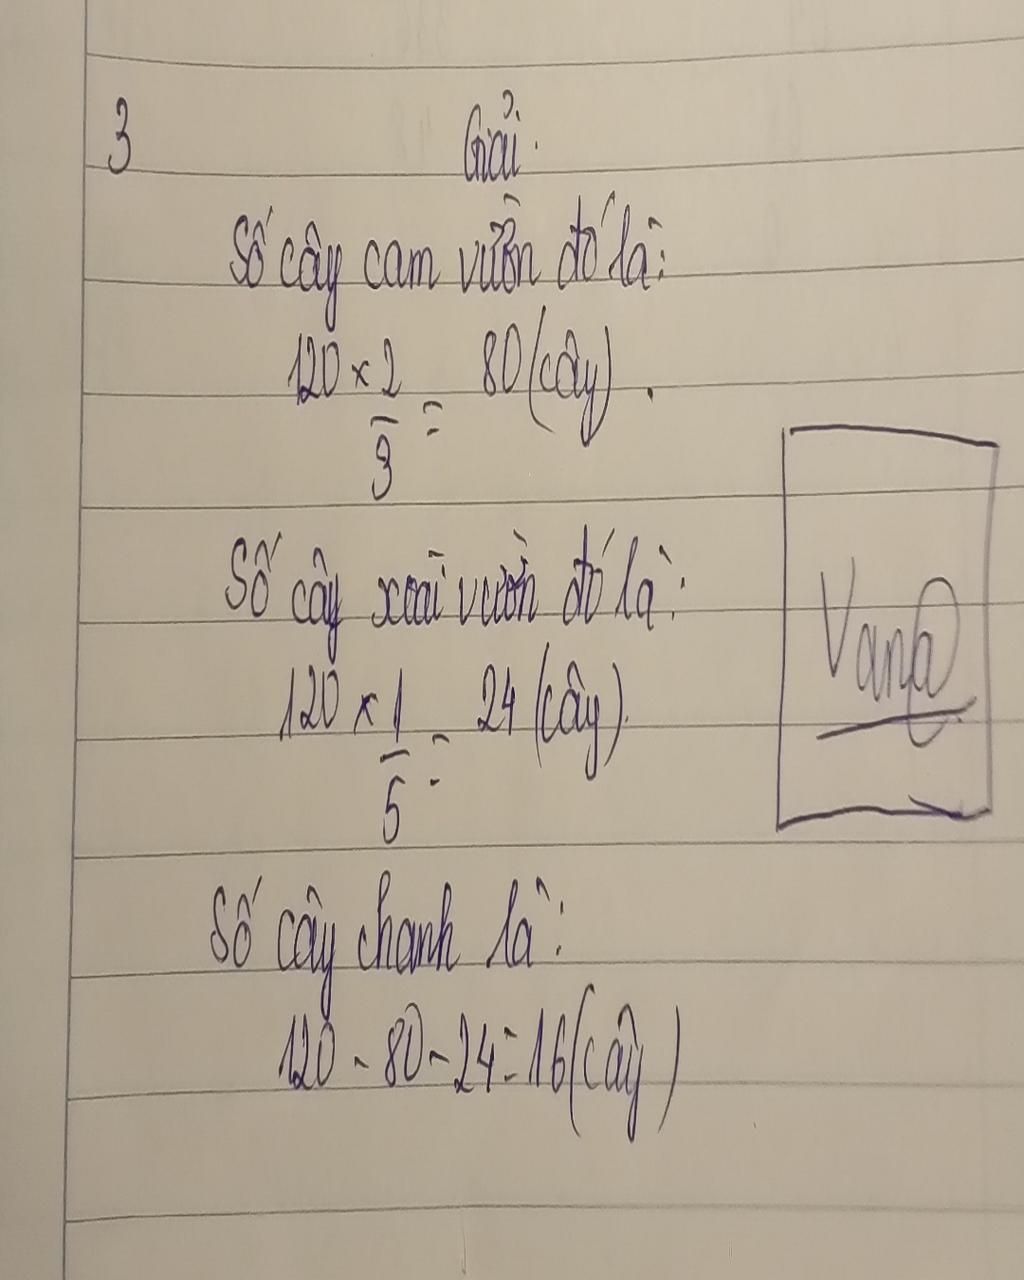 3 Giải.
Số cây cam vườn đó là:
120 × 2/3 = 80 (cây).
Số cây xoài vườn đó là:
120 × 1/5 = 24 (cây).
Số cây chanh là:
120 - 80 - 24 = 16 (cây)